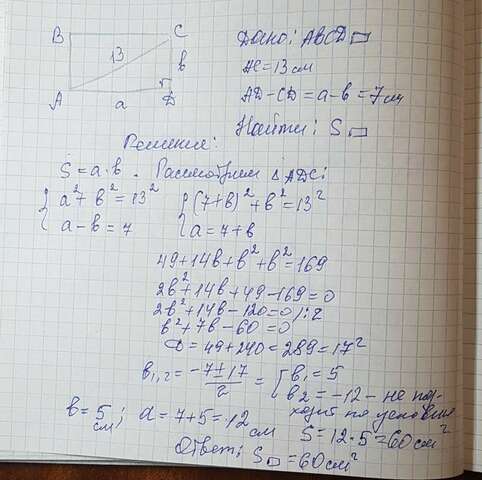 B
C
13
в
A
а
D
Дано: ABCD▭
AC=13 см
AD-CD=a-в=7см
Найти: S▭
Решение:
S=a·в. Рассмотрим △ADC:
{a²+в²=13² {(7+в)²+в²=13²
{a-в=7 {a=7+в
49+14в+в²+в²=169
2в²+14в+49-169=0
2в²+14в-120=0/:2
в²+7в-60=0
D=49+240=289=17²
в₁,₂=(-7±17)/2={в₁=5
{в₂=-12-не под-
ходит по условию
в=5 см; a=7+5=12 см
S=12·5=60см²
Ответ: S▭=60см²